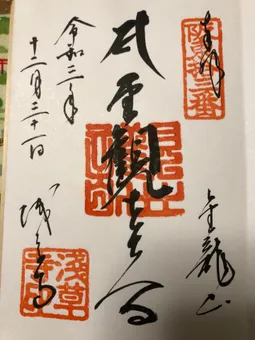 奉拝
金龍山
聖観世音
令和三年
十二月三十一日
浅草寺
浅草寺印